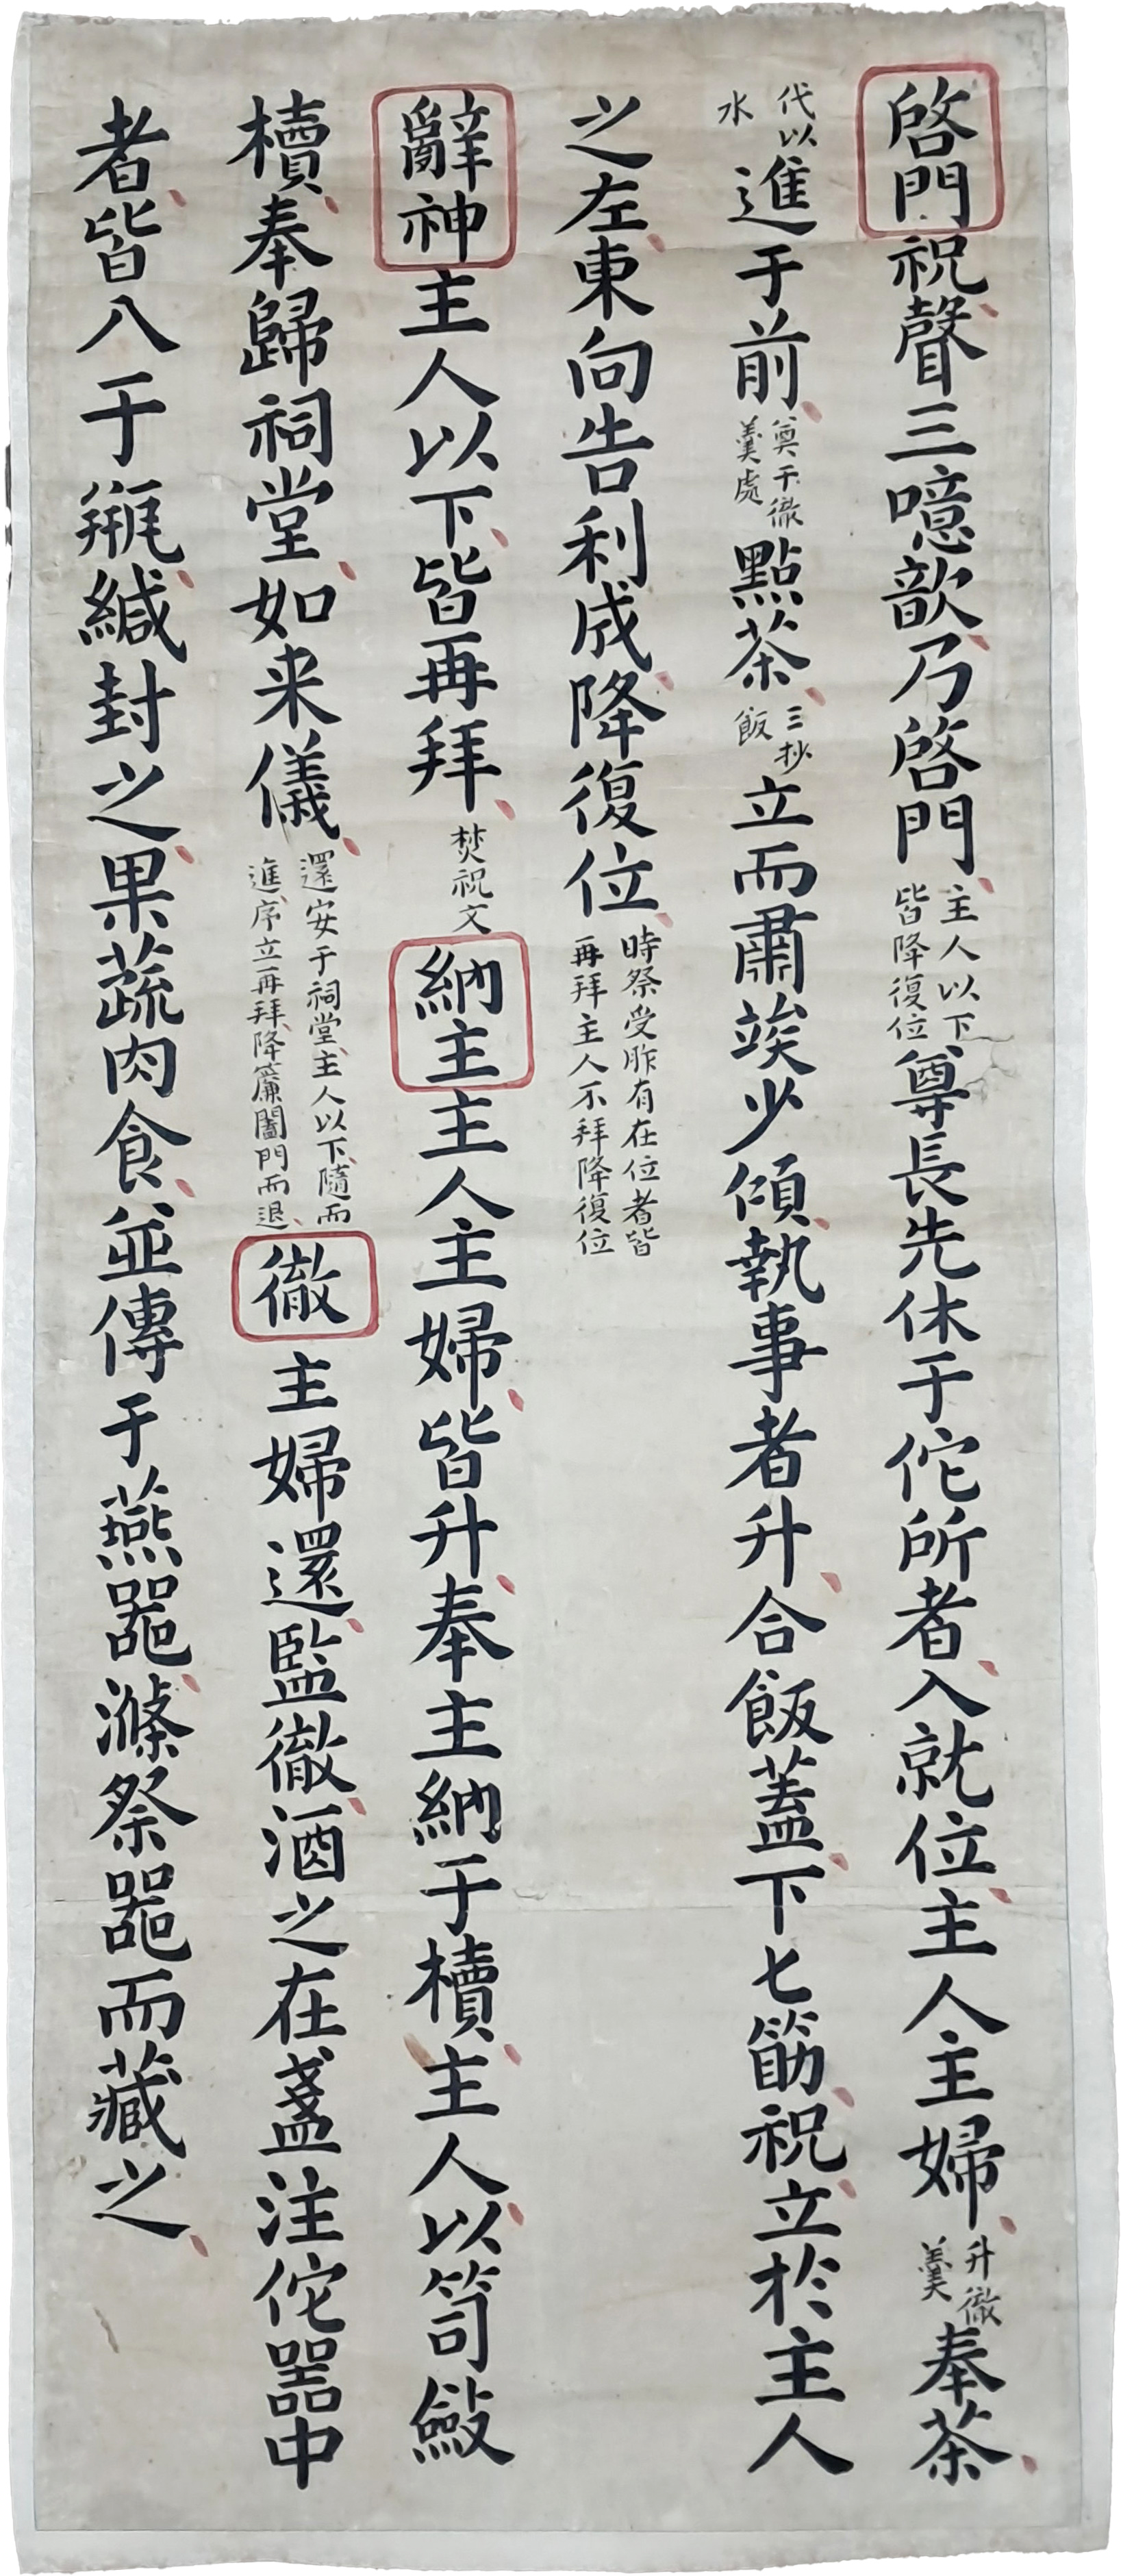 啓門祝聲三噫歆乃啓門主人以下皆降復位尊長先休于佗所者入就位主人主婦升徹羹奉茶
代以水進于前奠于徹羹處點茶三抄飯立而肅竢少傾執事者升合飯蓋下匕筯祝立於主人
之左東向告利成降復位時祭受胙有在位者皆再拜主人不拜降復位
辭神主人以下皆再拜焚祝文納主主人主婦皆升奉主納于櫝主人以笥斂
櫝奉歸祠堂如来儀還安于祠堂主人以下隨而進序立再拜降簾闔門而退徹主婦還監徹酒之在盞注佗器中
者皆入于瓶緘封之果蔬肉食並傳于燕器滌祭器而藏之